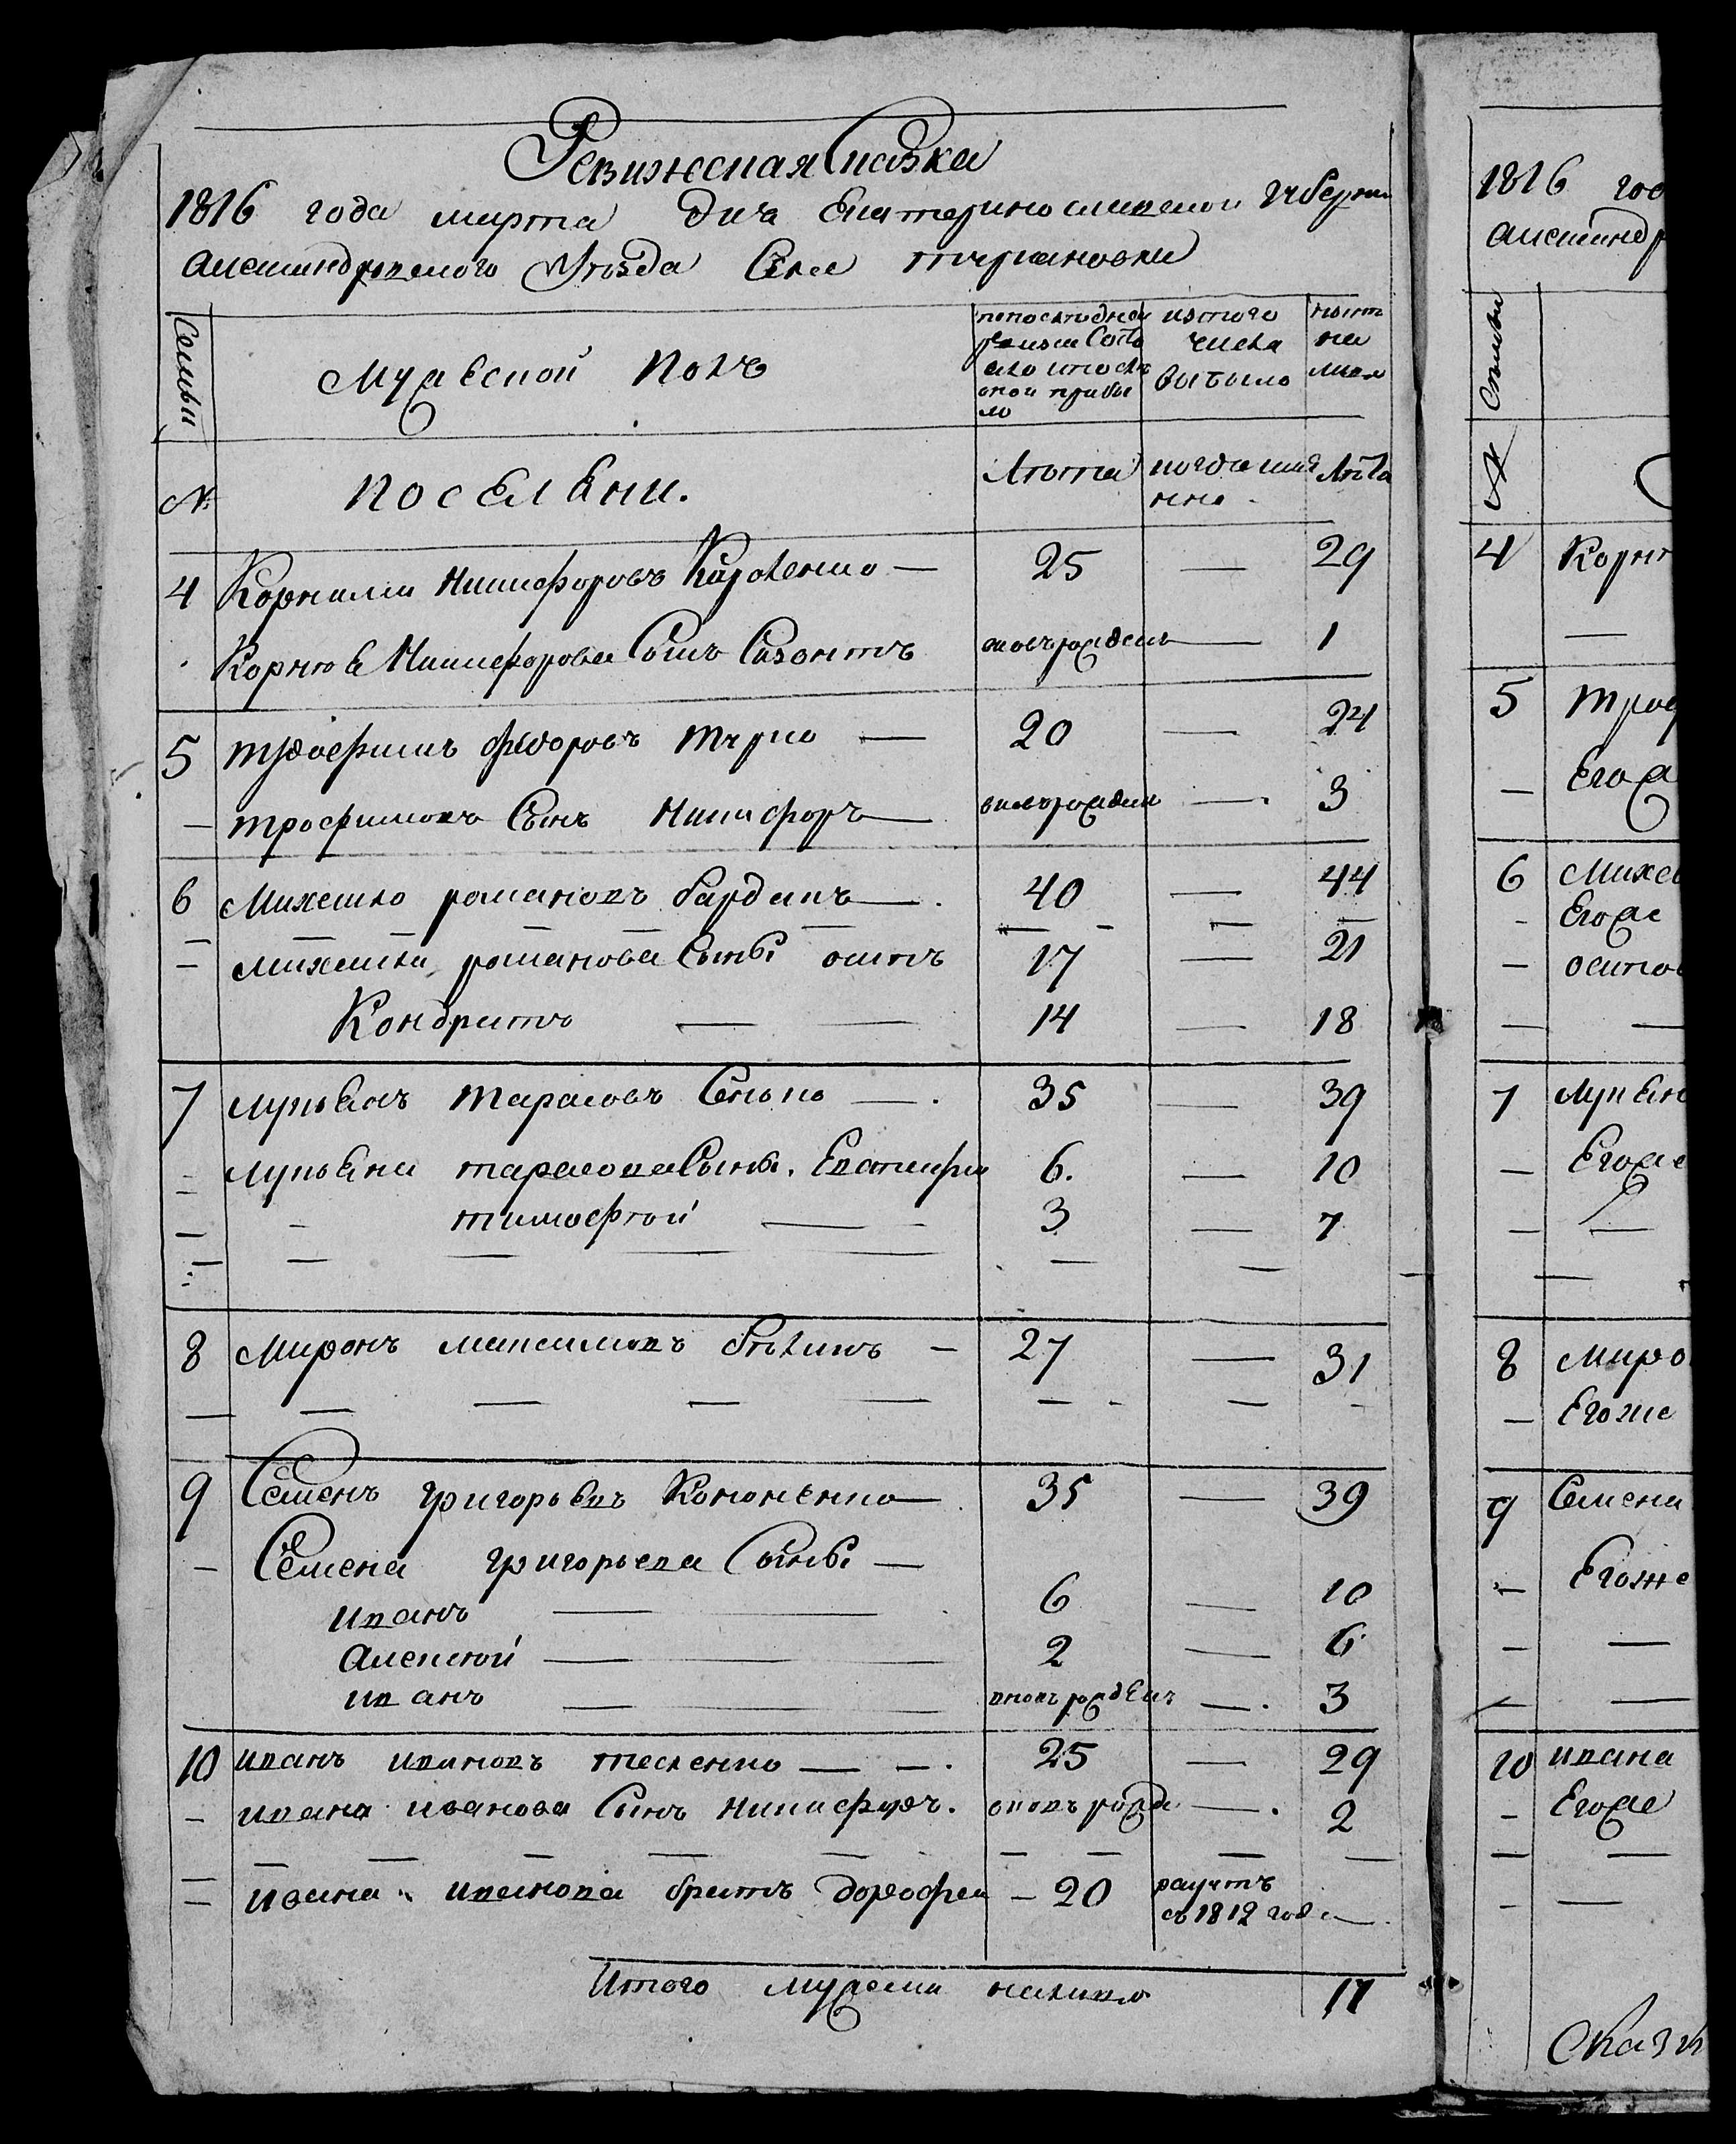 Ревижская Сказка
1816 года марта дня Екатеринославской Губерни
Александровского Уезда Села
Семьи
Мужеской Полъ
попоследней ревизи состояло и после оной прибыло
изтого числа выбыло
ныне на лицо
№
поселени.
Лета
когда именно
Лета
4 Корнилии Никифоровъ — 25 — 29
Корнея Никифорова Сынъ Созонтъ вновь рожденъ — 1
5 Трофимъ федоровъ Турко — 20 — 24
— трофимовъ Сынъ Никифоръ — вновь рожденъ — 3
6 Михайло романовъ — 40 — 44
— михайла романова Сыны осипъ 17 — 21
Кондратъ — — 14 — 18
7 лупьянъ тарасовъ — 35 — 39
лупьяна тарасова Сыны. Евстафи 6. — 10
— тимофей — 3 — 7
8 Миронъ максимовъ — 27 — 31
9 Семенъ григорьевъ Кононенко — 35 — 39
— Семена григорьева Сыны —
иванъ — — 6 — 10
Алексей — — 2 — 6
иванъ — — вновь рожденъ — 3
10 иванъ ивановъ тесленко — — 25 — 29
— ивана иванова Сынъ никифоръ. вновь рожде — 2
ивана иванова братъ дорофеи — 20
съ 1812 года —
Итого мужеска налицо 17
1816 год
александр
Семьи
№
4 Корни
—
5 троф
— Егоже
6 Михай
- Егоже
— осипов
— —
7 лупьян
— Егоже
— —
8 миро
— Егоже
9 Семена
— Егоже
— —
— —
10 ивана
— Егоже
— —
- —
Сказк